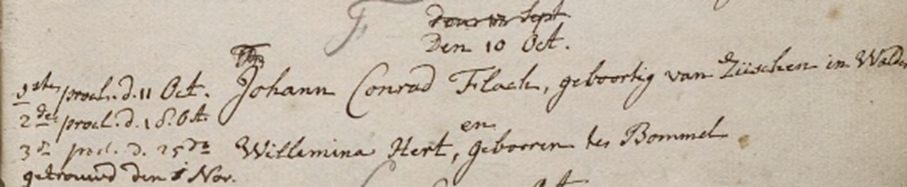 F
Den 10 Oct.
1ste procl. d. 11 Oct. Johann Conrad Flach, geboortig van Züschen in Walde
2de procl. d. 18. Oct.
en
3de procl. d. 25ste Willemina Hert, gebooren tes Bommel
getrouwd den 1 Nov.